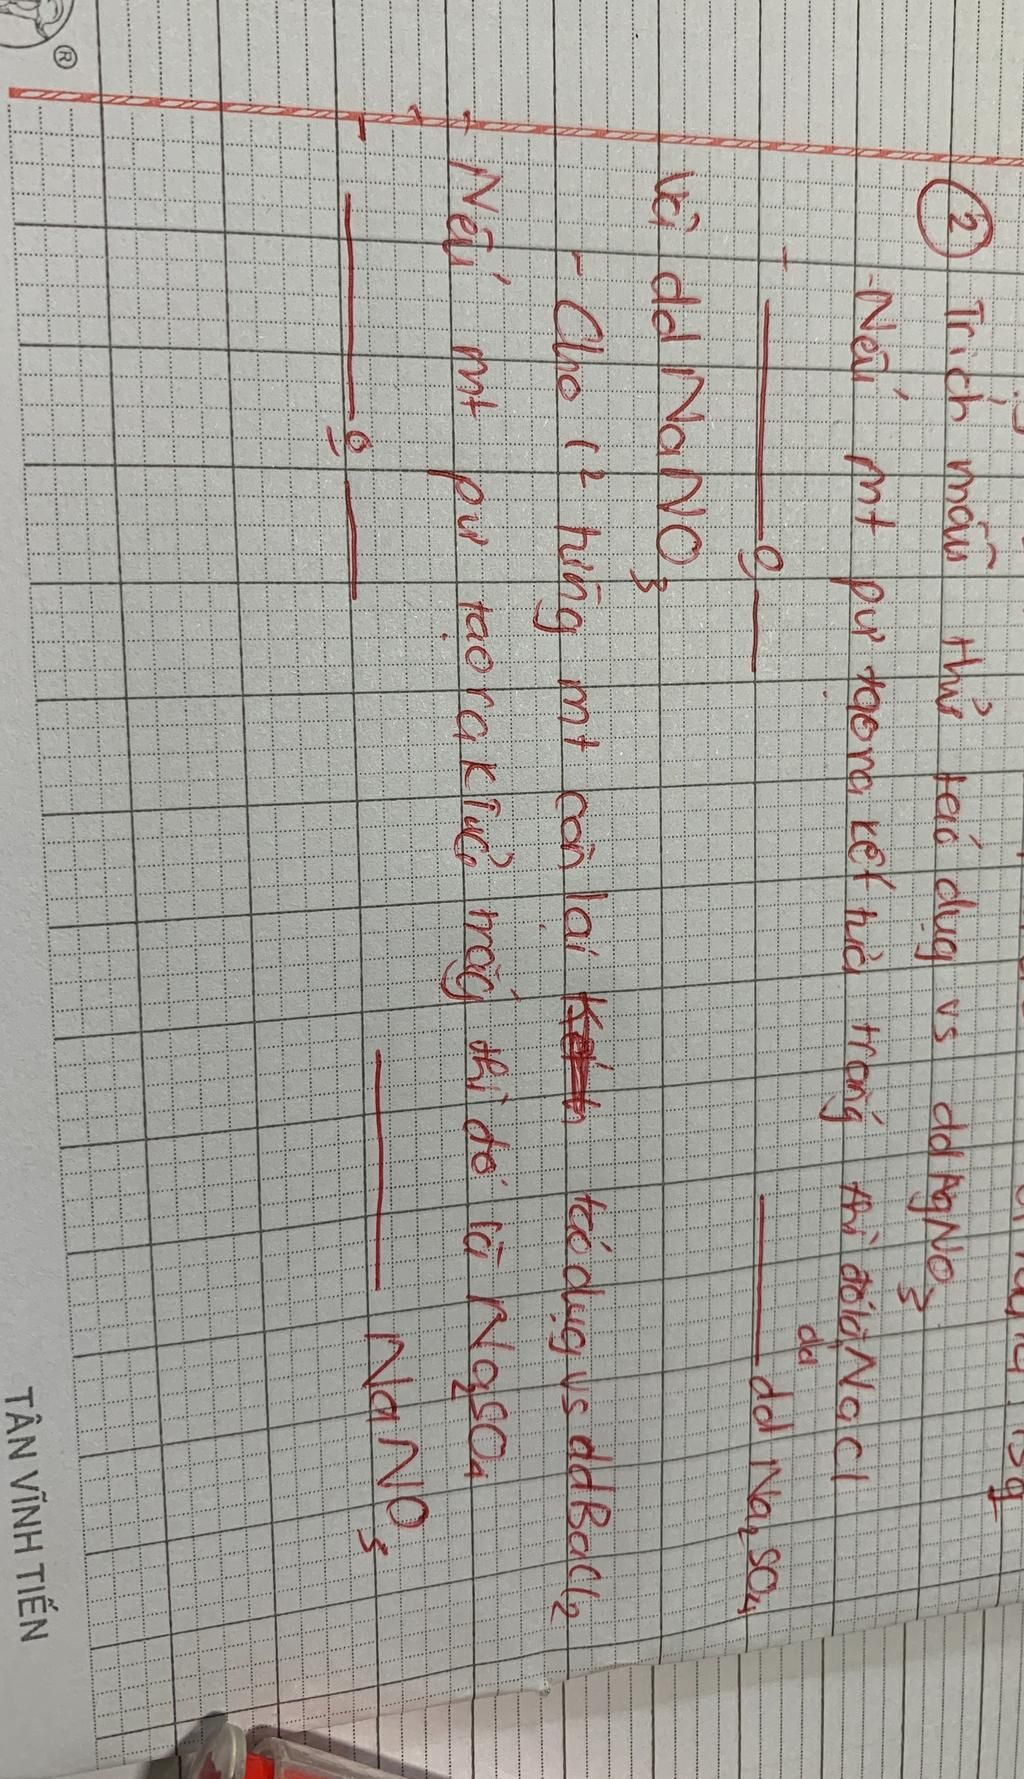 ② Trích mẫu thử tác dụg vs dd AgNO3
- Nếu mt pư tạo ra kết tủa trắng thì đó là dd NaCl
- ———— 0 —— ———— dd Na2SO4
Và dd NaNO3
- Cho l² từng mt còn lại tác dụg vs dd BaCl2
+ Nếu mt pư tạo ra k tủa trắg thì đó là Na2SO4
+ ———— 0 —— ———— NaNO3
TÂN VĨNH TIẾN
®